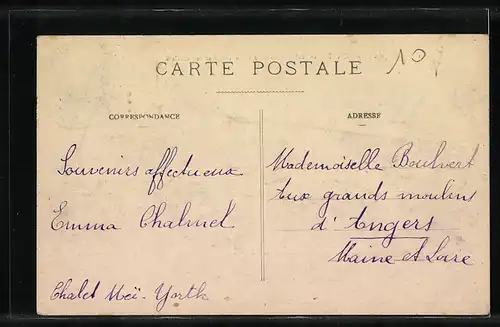 10
CARTE POSTALE
CORRESPONDANCE
Souvenirs affectueux
Emma Chalmel
Chalet Meï-Yorth
ADRESSE
Mademoiselle Boulvert
Aux grands moulins
d'Angers
Maine et Loire